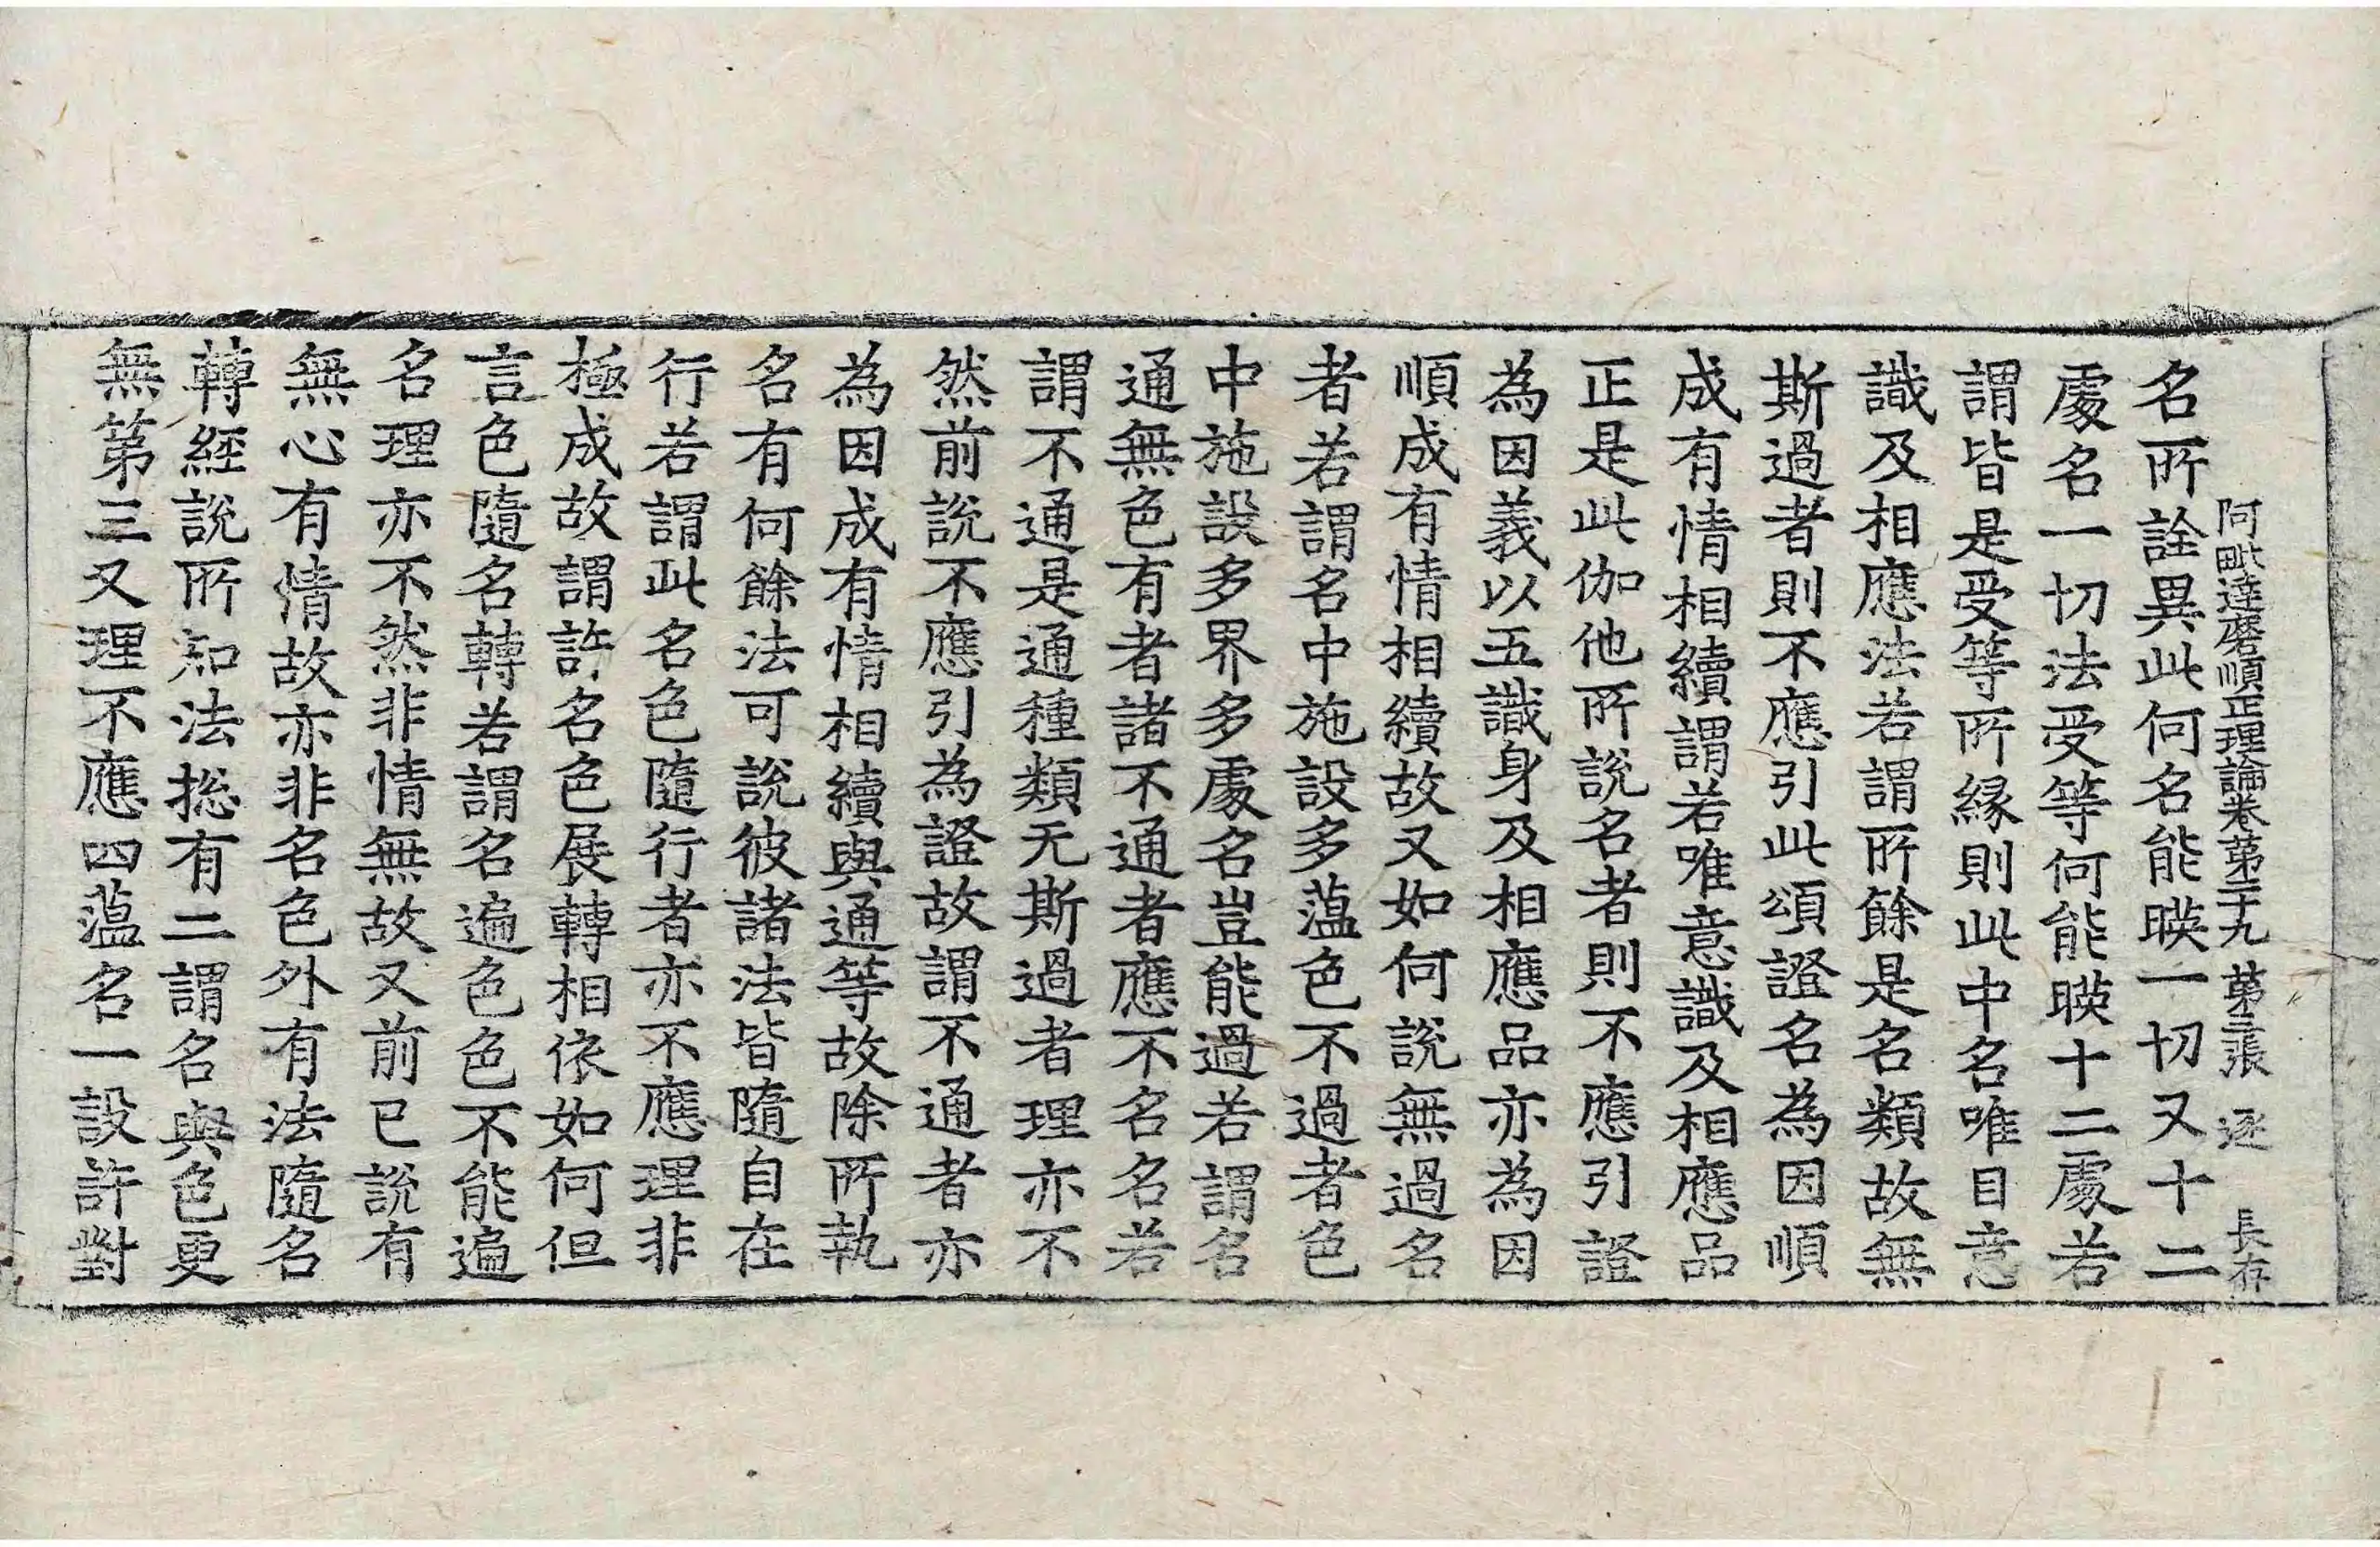 阿毗達磨順正理論卷第二十九 第三張 逐 長存
名所詮異此何名能暎一切又十二
處名一切法受等何能暎十二處若
謂皆是受等所緣則此中名唯目意
識及相應法若謂所餘是名類故無
斯過者則不應引此頌證名為因順
成有情相續謂若唯意識及相應品
正是此伽他所說名者則不應引證
為因義以五識身及相應品亦為因
順成有情相續故又如何說無過名
者若謂名中施設多蘊色不過者色
中施設多界多處名豈能過若謂名
通無色有者諸不通者應不名名若
謂不通是通種類无斯過者理亦不
然前說不應引為證故謂不通者亦
為因成有情相續與通等故除所執
名有何餘法可說彼諸法皆隨自在
行若謂此名色隨行者亦不應理非
極成故謂許名色展轉相依如何但
言色隨名轉若謂名遍色色不能遍
名理亦不然非情無故又前已說有
無心有情故亦非名色外有法隨名
轉經說所知法揔有二謂名與色更
無第三又理不應四蘊名一設許對